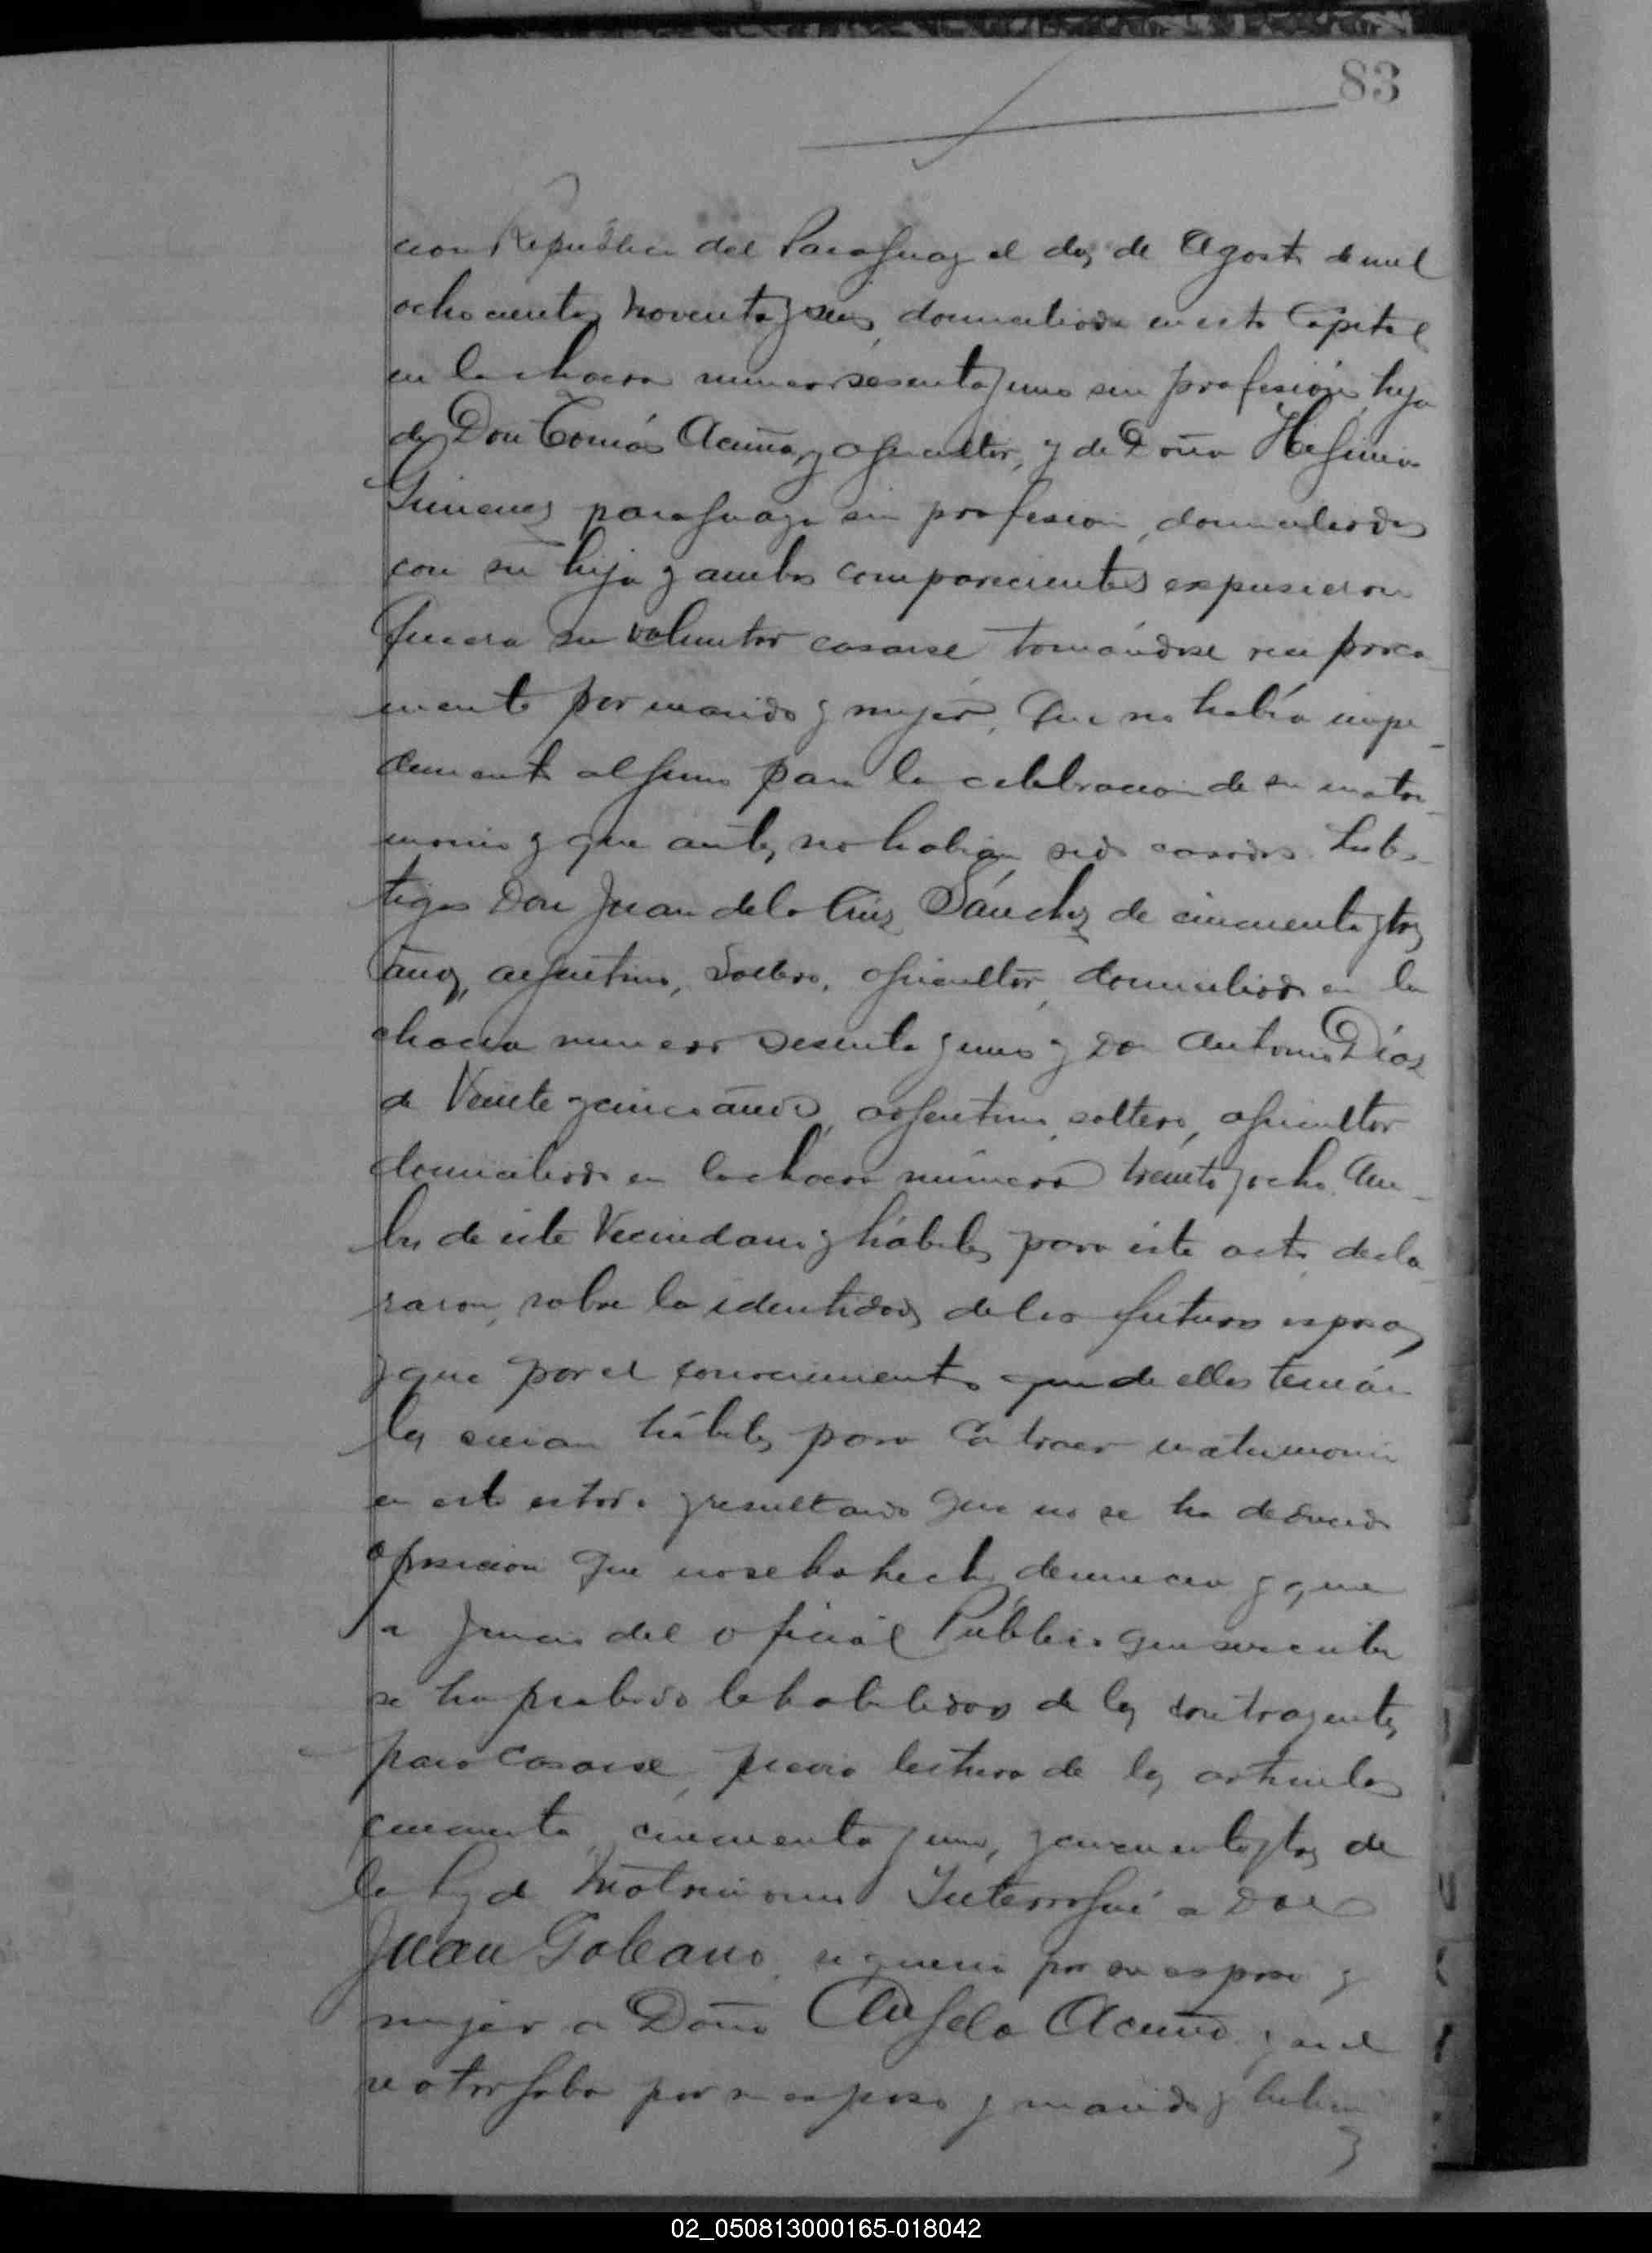 83
cion República del Paraguay el dos de Agosto de mil
ochocientos noventa y seis, domiciliada en esta Capital
en la chacra numero sesenta y uno sin profesión, hija
de Don Tomás Acuña, agricultor, y de Doña Higinia
Gimenez paraguaya sin profesion, domiciliados
con su hija y ambos comparecientes expusieron
Que era su voluntad casarse tomándose reciproca-
mente por marido y mujer. Que no había impe-
dimento alguno para la celebracion de su matri-
monio y que antes no habian sido casados. Los tes-
tigos Don Juan de la Cruz Sánchez de cincuenta y tres
años, argentino, soltero, agricultor, domiciliado en la
chacra numero sesenta y uno y Don Antonio Díaz
de Veinte y cinco años, argentino, soltero, agricultor
domiciliado en la chacra número treinta y ocho. Am-
bos de este Vecindario y hábiles para este acto decla-
raron, sobre la identidad de los futuros esposos
y que por el conocimiento que de ellos tenían
los creian hábiles para contraer matrimonio
en este estado y resultando que no se ha deducido
oposicion que no se ha hecho denuncia y que
a juicio del oficial Público que suscribe
se ha probado la habilidad de los contrayentes
para casarse, previa lectura de los articulos
cincuenta, cincuenta y uno, y cincuenta y tres de
la Ley de Matrimonio Interrogué a Don
Juan Galeano, si queria por su esposa y
mujer a Doña Angela Acuña y si él
se otorgaba por su esposo y marido y
02_050813000165-018042